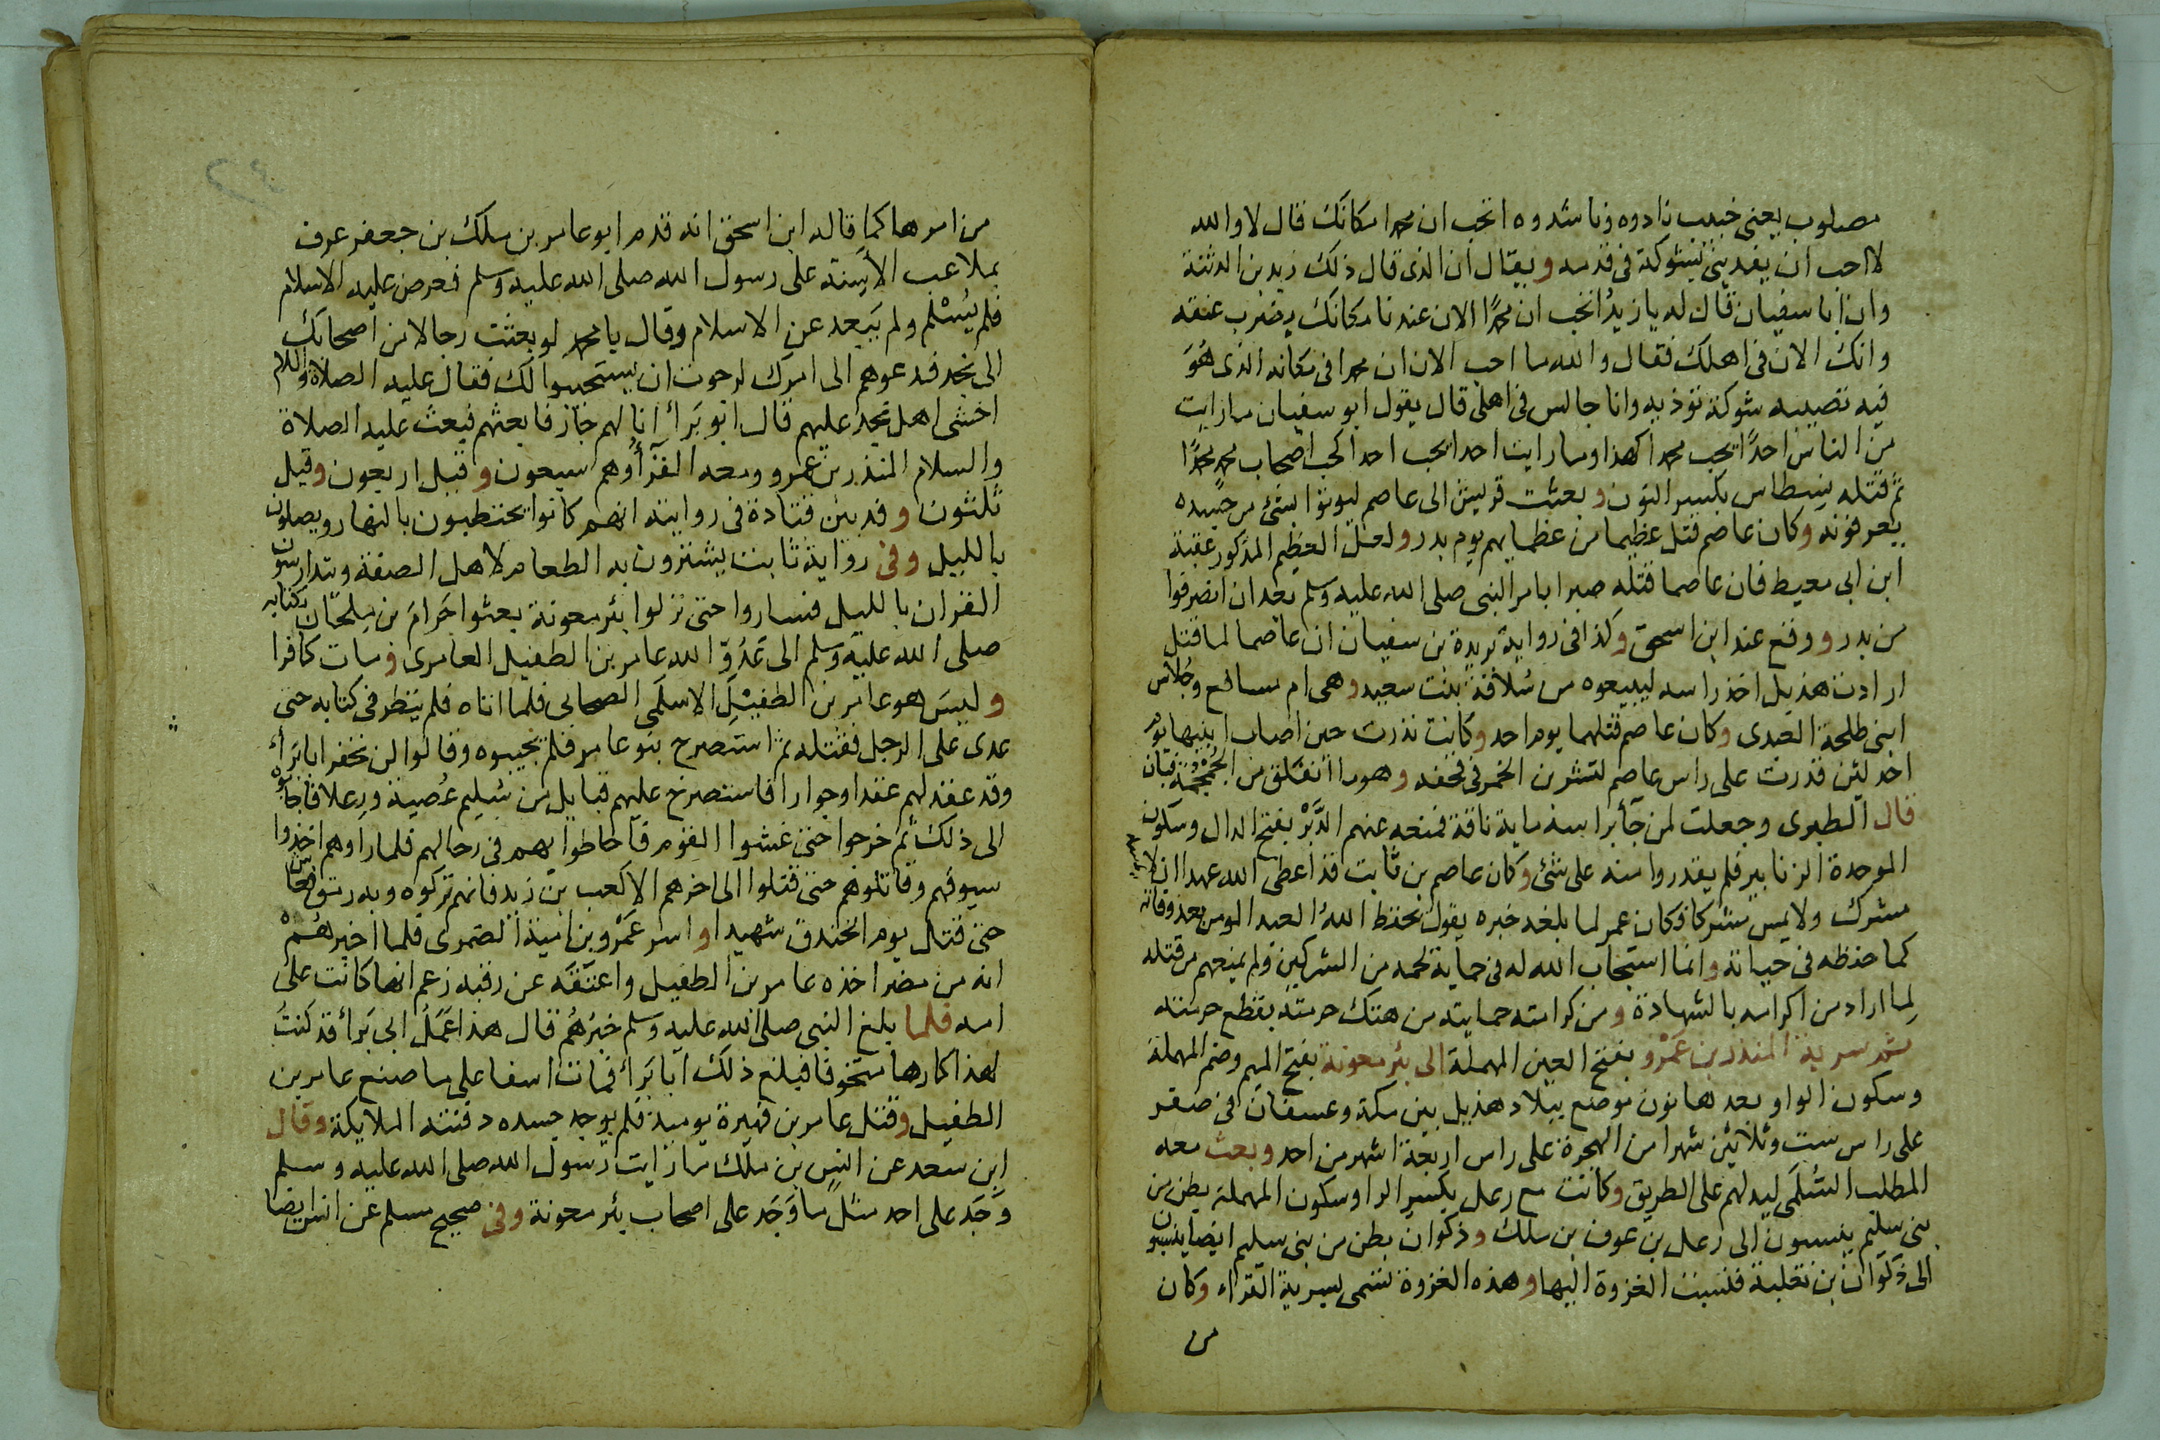 مصلوب يعنى خبيب نادوه وناشدوه اتحب ان محمدا مكانك قال لا والله
لااحب ان يفدينى بشوكة فى قدمه ويقال ان الذى قال ذلك زيد بن الدثنة
وان ابا سفيان قال له يا زيد اتحب ان محمدًا الان عندنا مكانك يضرب عنقه
وانك الان فى اهلك فقال والله ما احب الان ان محمدا فى مكانه الذى هُوَ
فيه تصيبه شوكة توذيه وانا جالس فى اهلى قال يقول ابو سفيان ما رايت
من الناس احدًا يحب محمدا كهذا وما رايت احدا يحب احدا كحب اصحاب محمد محمدًا
ثم قتله نِسطاس بكسر النون وبعثت قريش الى عاصم ليوتوا بشئ من جسده
يعرفونه وكان عاصم قتل عظيما من عظمايهم يوم بدر ولعل العظيم المذكور عقبة
ابن ابى معيط فان عاصما قتله صبرا بامر النبى صلى الله عليه وسلم بعد ان انصرفوا
من بدر ووقع عند ابن اسحق وكذا فى رواية بريدة بن سفيان ان عاصما لما قتل
ارادت هذيل اخذ راسه ليبيعوه من سُلافة بنت سعيد وهى ام مسافع وجُلاس
ابنى طلحة العبدى وكان عاصم قتلهما يوم احد وكانت نذرت حين اصاب ابنيها يوم
احد لئن قدرت على راس عاصم لتشربن الخمر فى قحفه وهو ما انفلق من الجُمْجُمَة فبان
قال الطبرى وجعلت لمن جآبراسه ماية ناقة فمنعه عنهم الدَّبْر بفتح الدال وسكون
الموحدة الزنابير فلم يقدروا منه على شئ وكان عاصم بن ثابت قد اعطى الله عهدا ان لا
مشرك ولا يمس مشركا فكان عمر لما بلغه خبره يقول يحفظ اللهُ العبد المومن بعد وفاته
كما حفظه فى حياته وانما استجاب الله له فى حماية لحمه من المشركين ولم يمنعهم من قتله
لِما اراد من اكرامه بالشهادة ومن كرامته حمايته من هتك حرمته بقطع حرمته
ثم سرية المنذر بن عَمْرو بفتح العين المهملة الى بئر معونة بفتح الميم وضم المهملة
وسكون الواو بعدها نون موضع ببلاد هذيل بين مكة وعسفان فى صفر
على راس ست وثلاثين شهرا من الهجرة على راس اربعة اشهر من احد وبعث معه
المطلب السُلَمى ليدلهم على الطريق وكانت مع رعل بكسر الرا وسكون المهملة بطن من
بنى سليم ينسبون الى رعل بن عوف بن ملك وذكوان بطن من بنى سليم ايضا ينسبون
الى ذكوان بن ثعلبة فنسبت الغزوة اليها وهذه الغزوة تسمى بسرية القراء وكان
من
من امرها كما قاله ابن اسحق انه قدم ابو عامر بن ملك بن جعفر عرف
بملاعب الأسِنّة على رسول الله صلى الله عليه وسلم فعرض عليه الاسلام
فلم يُسْلم ولم يَبعد عن الاسلام وقال يا محمد لو بعثت رجالا من اصحابك
الى نجد فدعوهم الى امرك لرجوت ان يستجيبوا لك فقال عليه الصلاة والسلام
اخشى اهل نجد عليهم قال ابو بَرَأ انا لهم جار فابعثهم فبعث عليه الصلاة
والسلام المنذر بن عمرو ومعه القرّأ وهم سبعون وقيل اربعون وقيل
ثلثون وقد بين قتادة فى روايته انهم كانوا يحتطبون بالنهار ويصلون
بالليل وفى رواية ثابت يشترون به الطعام لاهل الصفة ويتدارسون
القران بالليل فساروا حتى نزلوا بئر معونة بعثوا حَرامَ بن مِلحان بكتابه
صلى الله عليه وسلم الى عَدُوّ الله عامر بن الطفيل العامرى ومات كافرا
وليس هو عامر بن الطفَيْل الاسلَمى الصحابى فلما اتاه فلم ينظر فى كتابه حتى
عدى على الرجل فقتله ثم استصرخ بنو عامر فلم يجيبوه وقالوا لن نخفر ابا بَرَأ
وقد عقد لهم عقدا وجوارا فاستصرخ عليهم قبايل من سُليم عُصية ورِعلا فاجابوه
الى ذلك ثم خرجوا حتى غشوا القوم فاحاطوا بهم فى رحالهم فلما راوهم اخذوا
سيوفهم وقاتلوهم حتى قتلوا الى اخرهم الا كعب بن زيد فانهم تركوه وبه رمق فعاش
حتى قتل يوم الخندق شهيدا واسر عَمْرو بن امية الضمرى فلما اخبرهُمْ
انه من مضر اخذه عامر بن الطفيل واعتَقَه عن رقبه زعم انها كانت على
امه فلما بلغ النبى صلى الله عليه وسلم خبرُهُم قال هذا عَمَلُ ابى بَرأ قد كنتُ
لهذا كارها متخوفا فبلغ ذلك ابا بَرَأ فمات اسفا على ما صنع عامر بن
الطفيل وقتل عامر بن فهيرة يوميذ فلم يوجد جسده دفنته الملايكة وقال
ابن سعد عن انس بن ملك ما رايت رسول الله صلى الله عليه وسلم
وَجَد على احد مثلَ ما وَجَد على اصحاب بئر معونة وفى صحيح مسلم عن انس ايضا